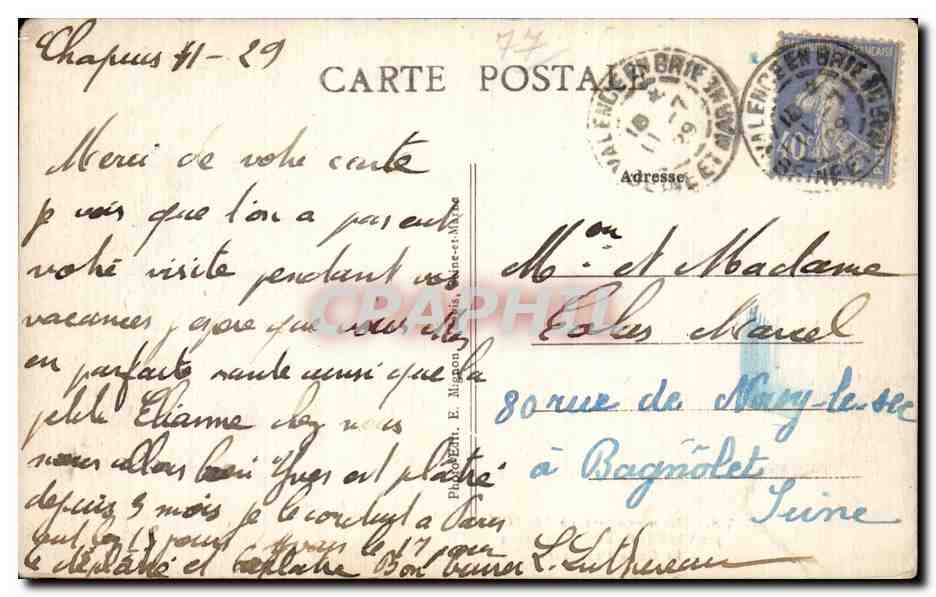 Chapuis 11-29
77
CARTE POSTALE
VALENCE EN BRIE SEINE ET MARNE
FRANÇAISE
40c
Adresse
Merci de votre carte
je vois que l'on a pas eut
votre visite pendant vos
vacances j'espere que vous etes
en parfaite sante ainsi que la
petite Elianne chez nous
nous allons bien Yves est platré
depuis 5 mois je le conduit a Paris
tout les 15 jours le 17 pour
le deplatré et replatre Bon baiser
L. Luthereau
Photo-Edit. E. Mignon, Seine-et-Marne
CPAPHIL
Mon. et Madame
Colas Marcel
80 rue de Noisy-le-sec
à Bagnôlet
Seine